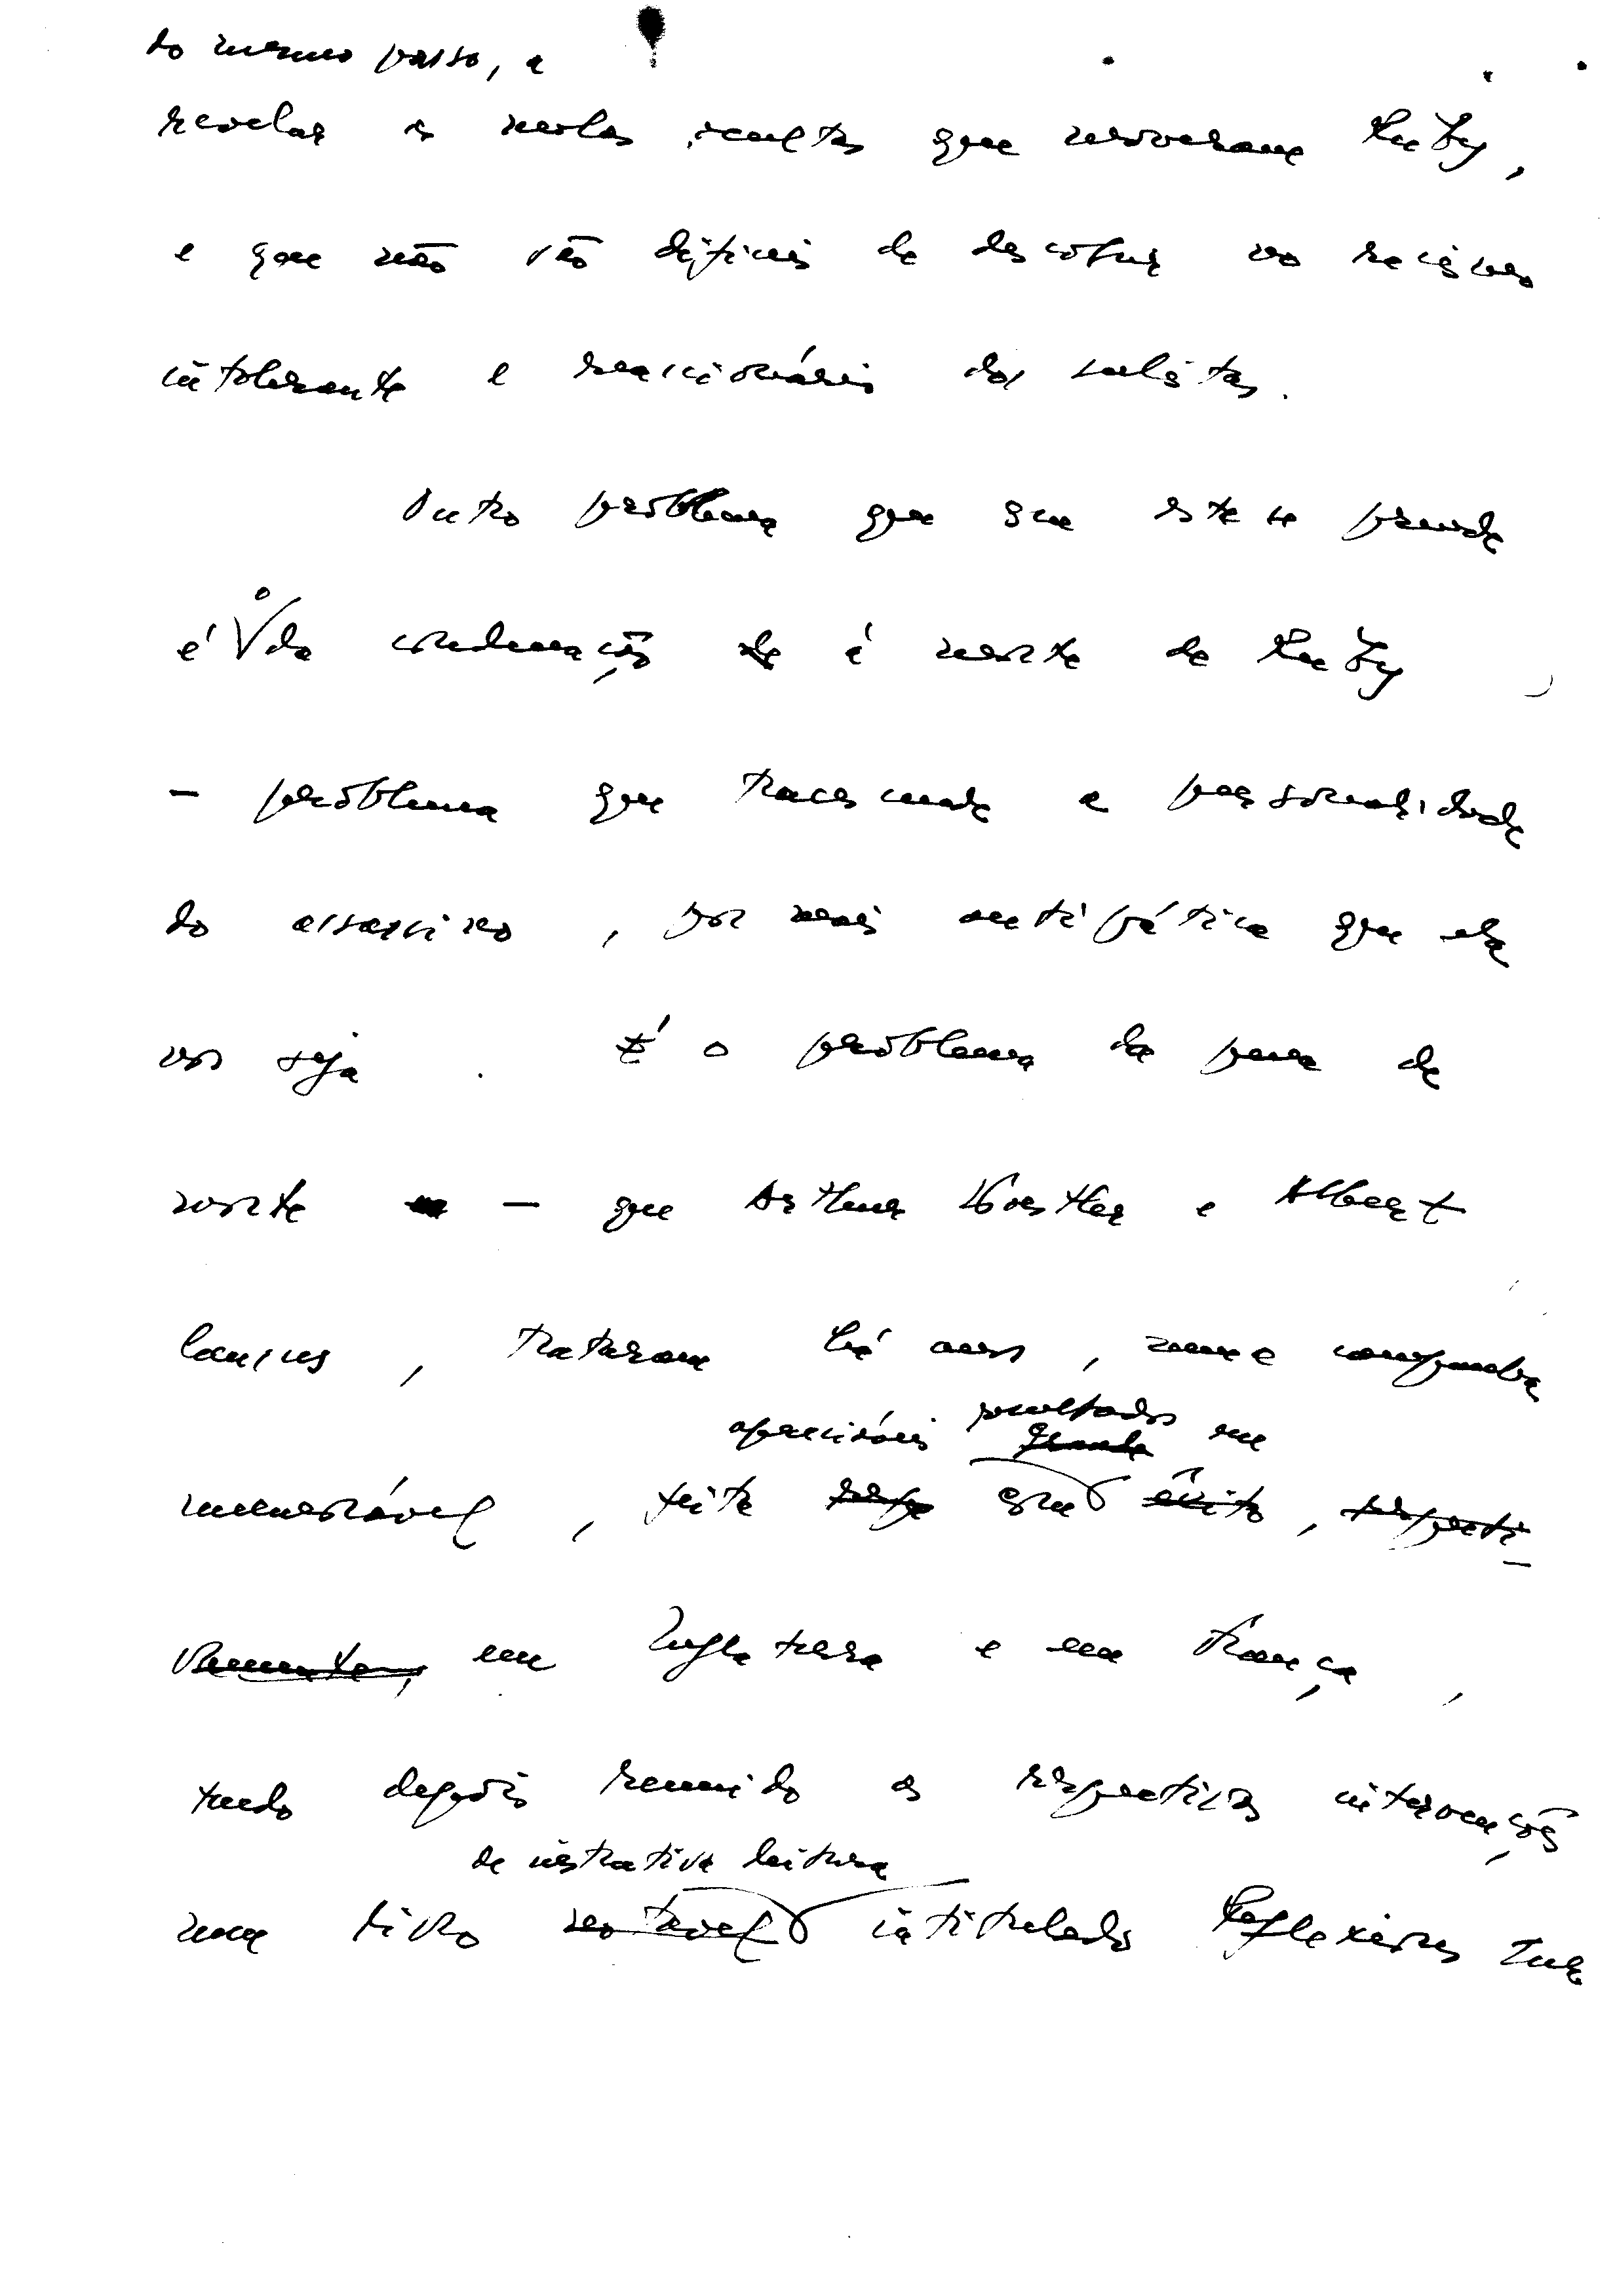 do mesmo passo, a
revelar as molas ocultas que moveram Ruby,
e que não são difíceis de descobrir no racismo
intolerante e reaccionário dos sulistas.
Outro problema que com este se prende
é o da condenação de à morte de Ruby
– problema que transcende a personalidade
do assassino, por mais antipática que ela
nos seja. É o problema da pena de
morte – que Arthur Koestler e Albert
Camus, trataram há anos, numa campanha
apreciáveis resultados em
memorável, feita com êxito, respecti-
vamente, em Inglaterra e em França,
tendo depois reunido as respectivas intervenções
de instrutiva leitura
num livro notável intitulado Reflexions sur